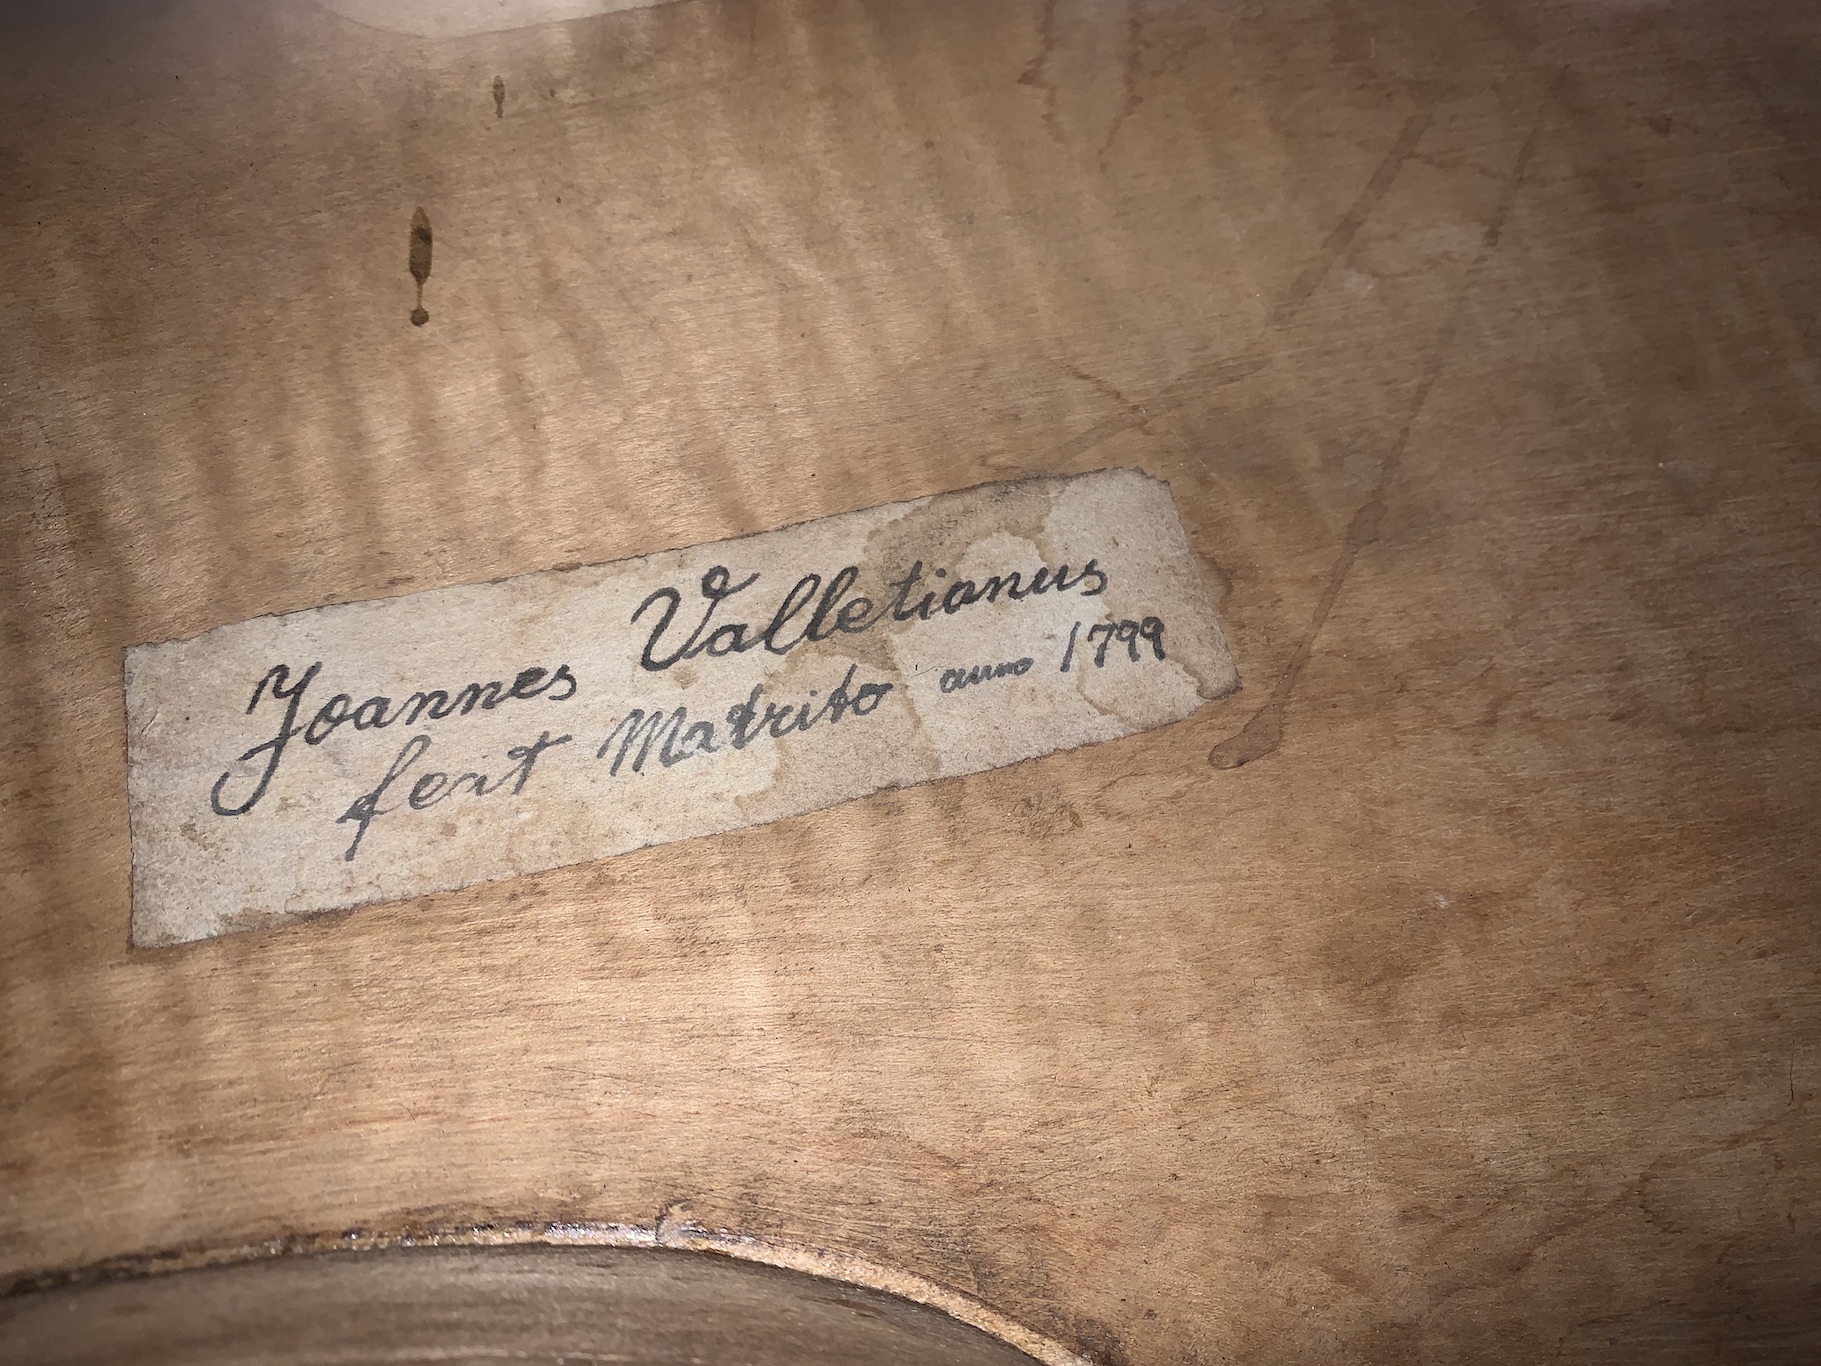 Joannes Valletianus
fecit Matrito anno 1799